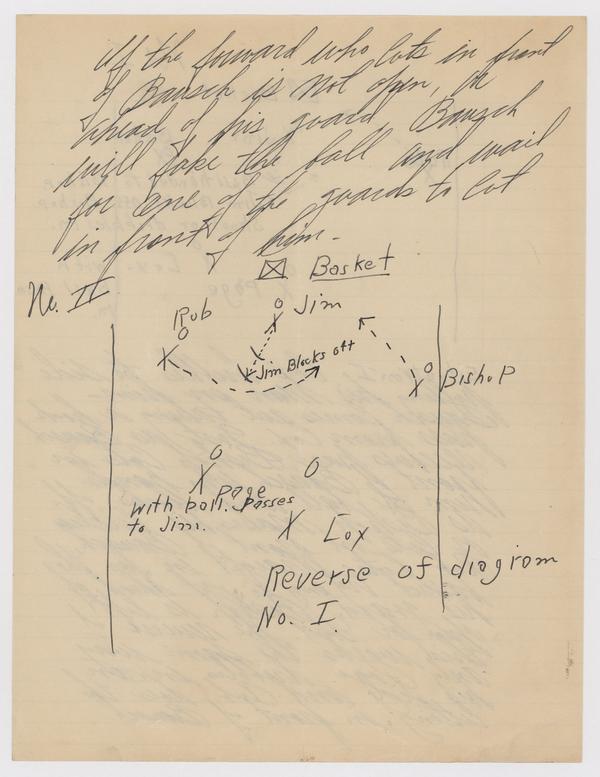 If the forward who cuts in front
of Bausch is not open, or
ahead of his guard, Bausch
will fake the ball and wait
for one of the guards to cut
in front of him.
Basket
No. II
Rub
Jim
Jim Blocks off
Bishop
Page
with ball. Passes
to Jim.
Cox
Reverse of diagram
No. I.